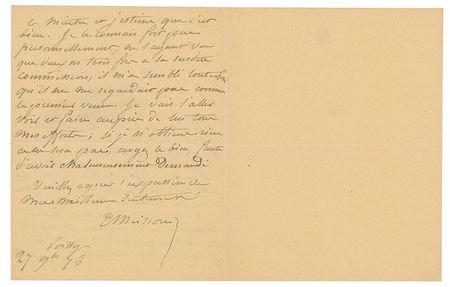 ce maître et j'estime que c'est
bien. Je le connais fort peu
personnellement, ne l'ayant vu
que deux ou trois fois à la susdite
commission, il m'a semblé
qu'il ne me regardait pas comme
le premier venu. Je vais l'aller
voir et faire auprès de lui tous
mes efforts; si je n'obtiens rien
ce ne sera pas, croyez le bien, faute
d'avoir chaleureusement Demandé
Veuillez agréer l'expression de
mes meilleurs sentiments
EMeissonier
Poissy
27 9bre 76